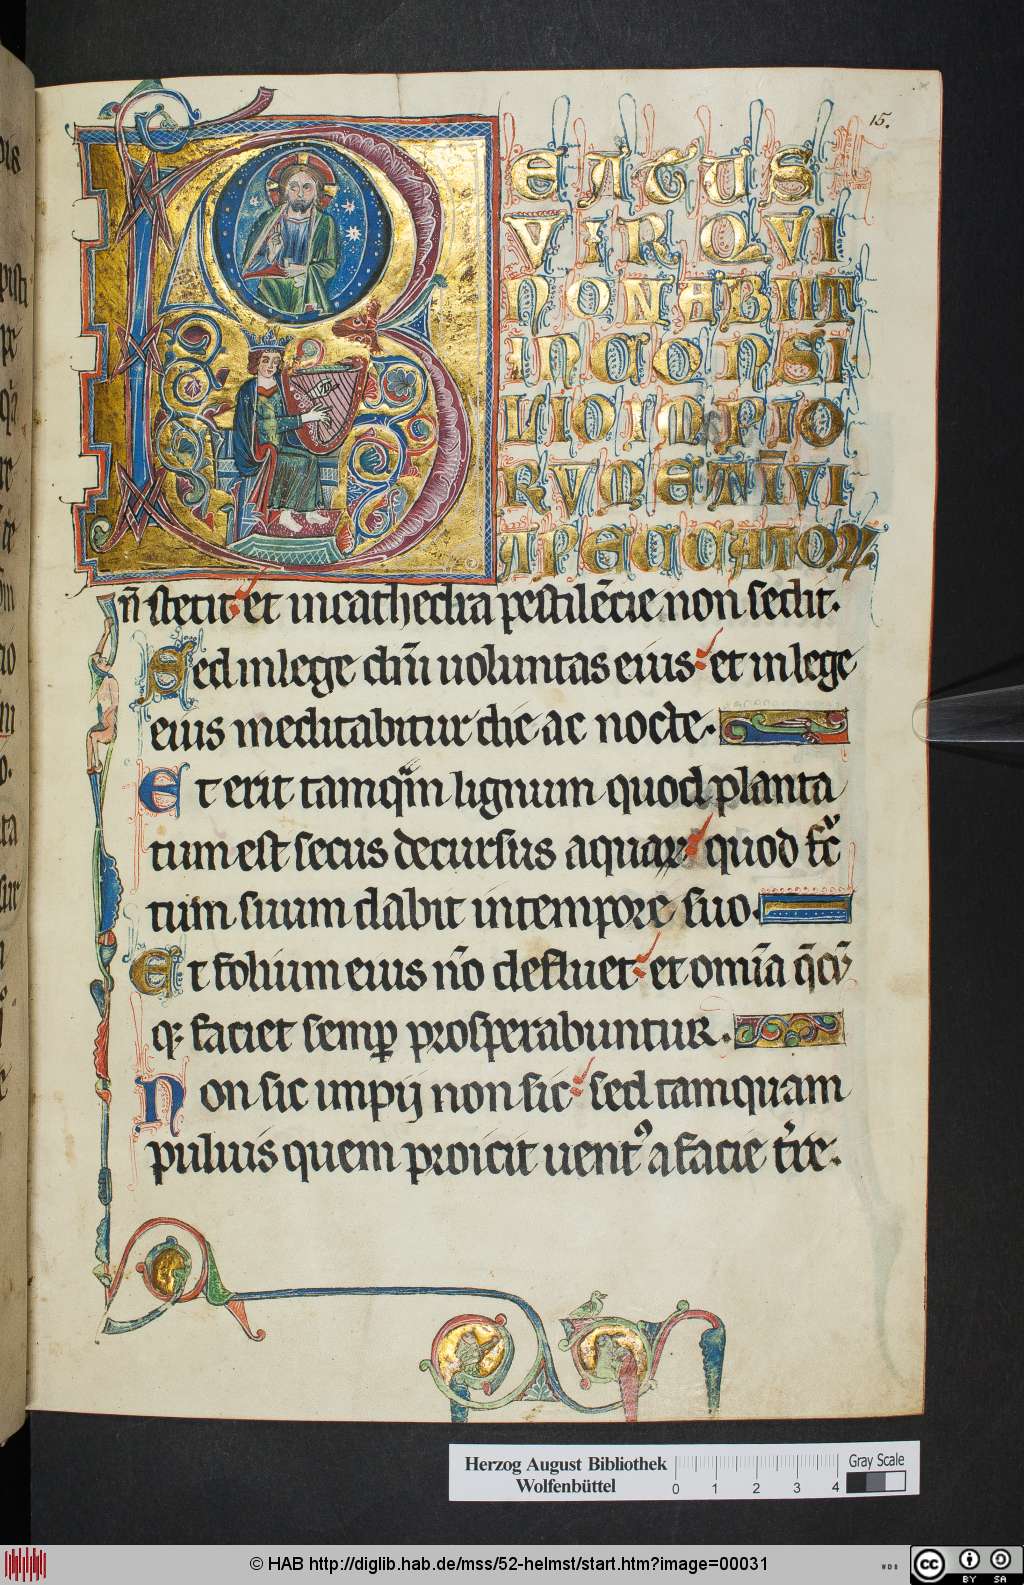 15.
BEATUS
VIR QVI
NON ABIIT
IN CONSI
LIO IMPIO
RVM ET I̅ VI
A PECCATOꝜ
n̄ stetit et in cathedra pestilēcie non sedit.
Sed in lege dn̄i uoluntas eius et in lege
eius meditabitur die ac nocte.
Et erit tamq̄m lignum quod planta
tum est secus decursus aquaꝝ quod fc̄
tum suum dabit in tempore suo.
Et folium eius nō defluet et omīa q̄cū
qꝫ faciet semꝑ prosperabuntur.
Non sic impij non sic sed tamquam
puluis quem proicit uentꝰ a facie t̄re.
Herzog August Bibliothek
Wolfenbüttel
0 1 2 3 4
Gray Scale
© HAB http://diglib.hab.de/mss/52-helmst/start.htm?image=00031
WDB
cc BY SA